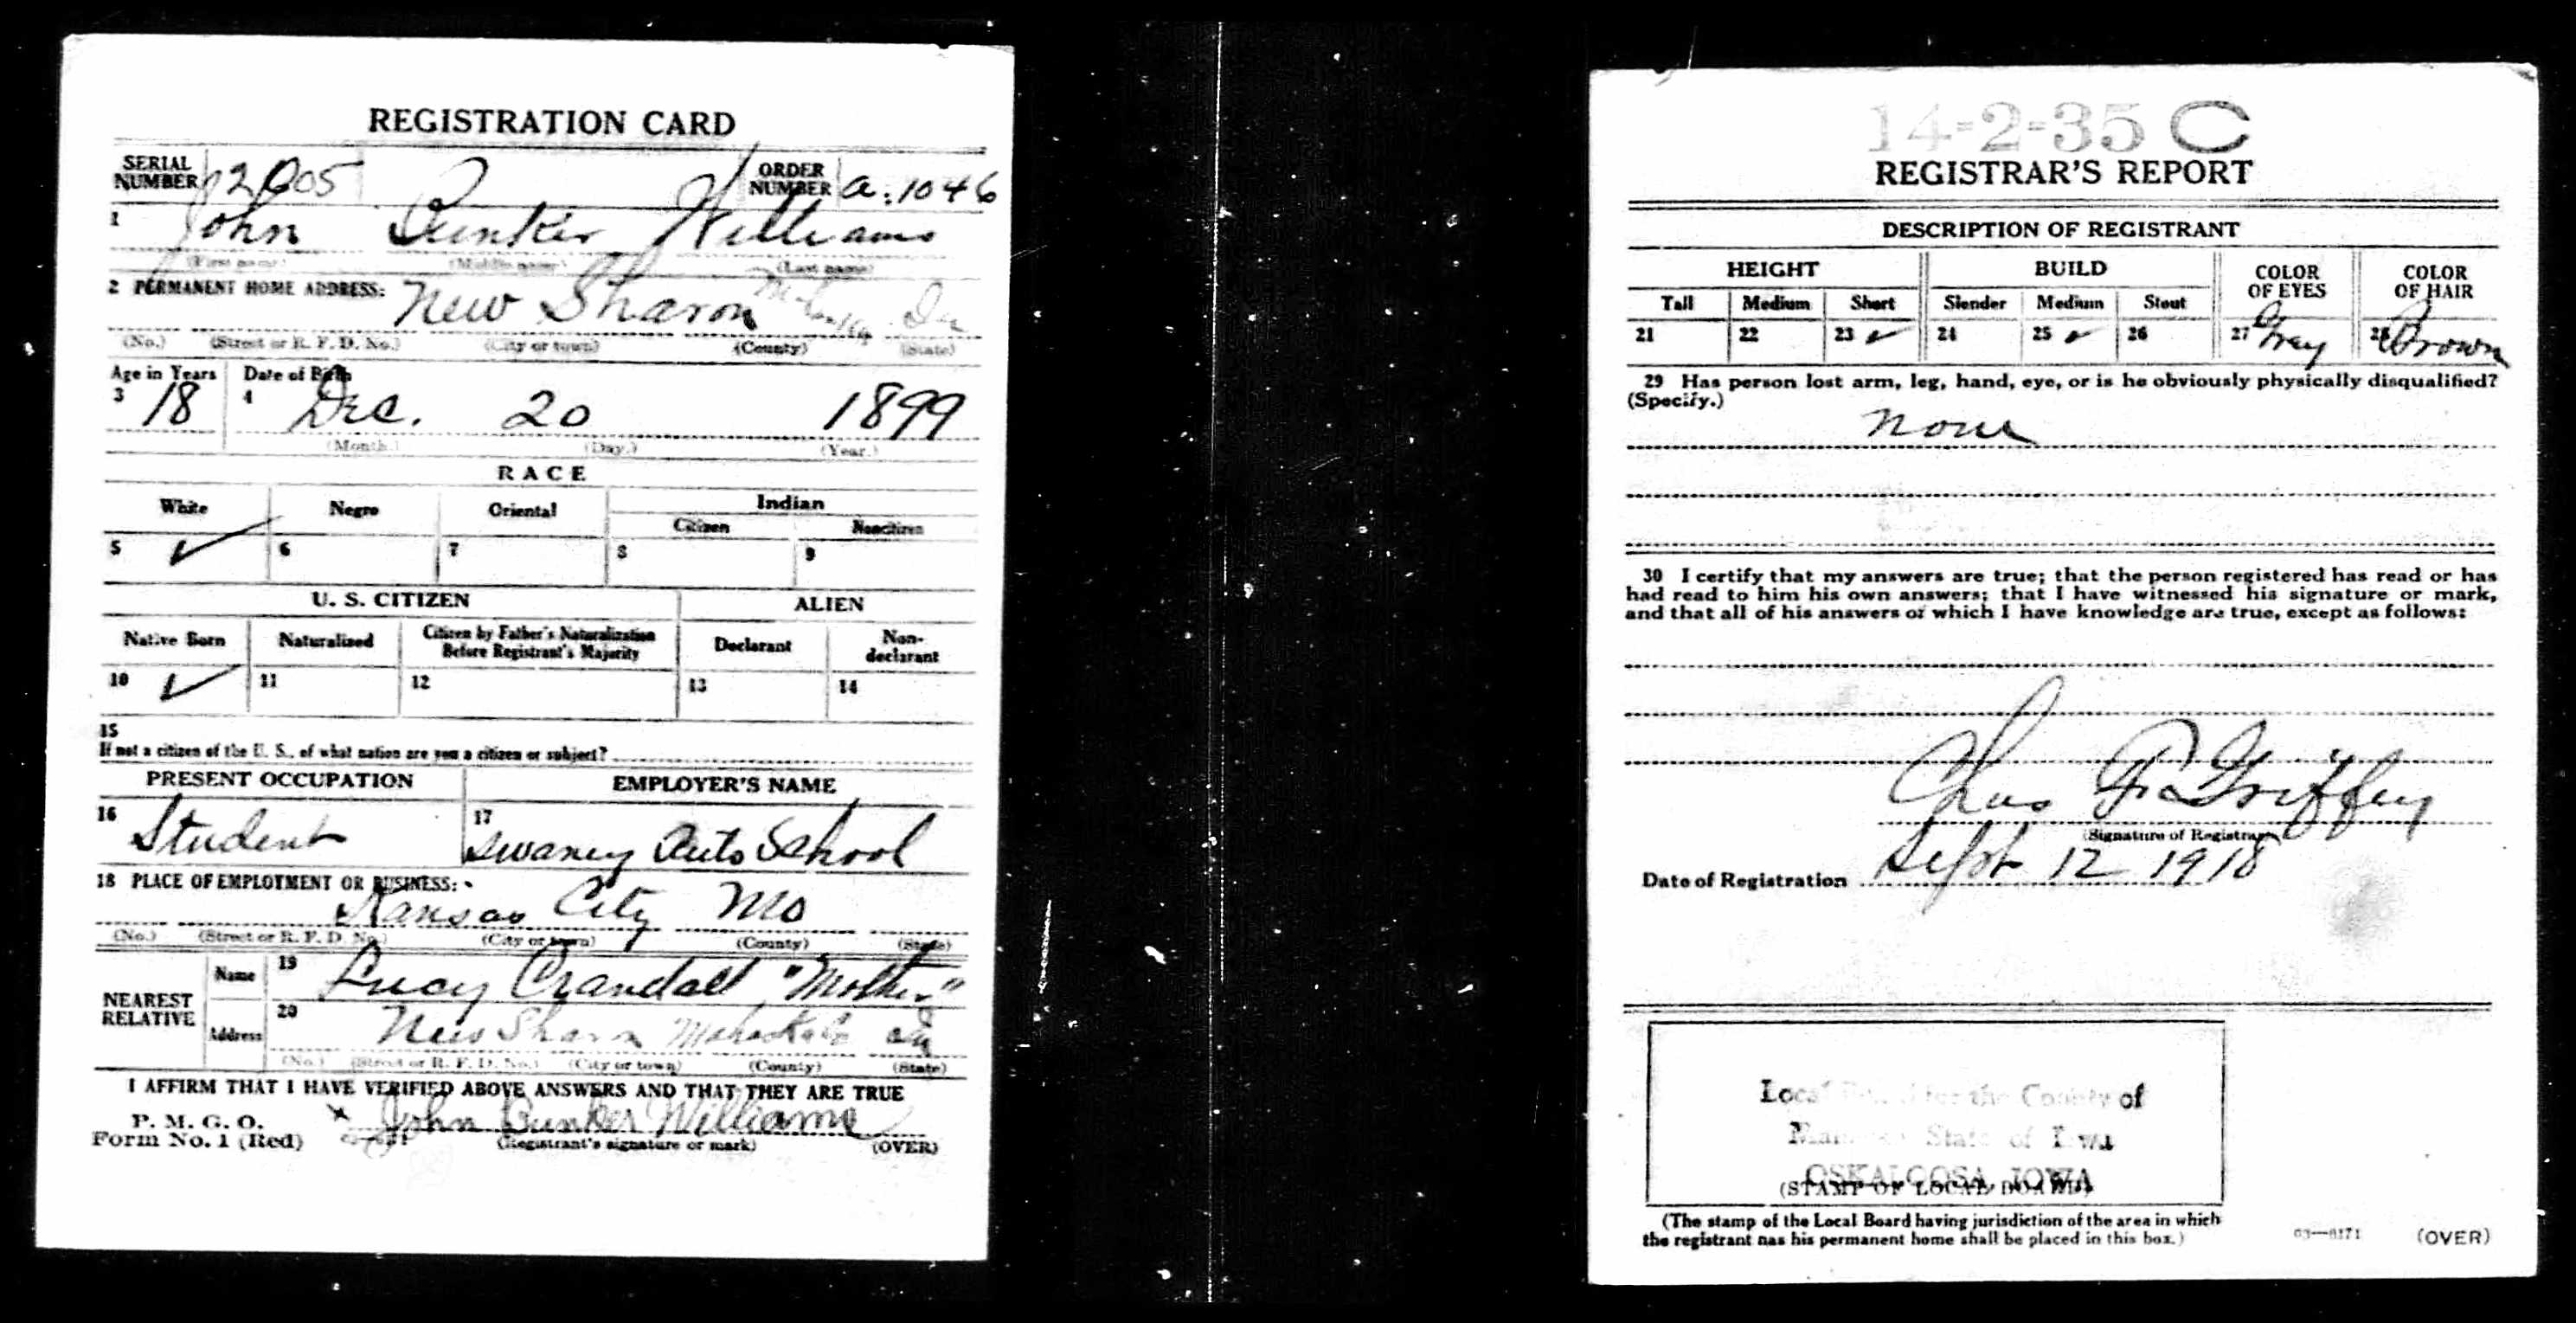 REGISTRATION CARD
SERIAL NUMBER 2005 ORDER NUMBER a.1046
1 John Bunker Williams
(First name) (Middle name) (Last name)
2 PERMANENT HOME ADDRESS: New Sharon
(No.) (Street or R. F. D. No.) (City or town) (County) (State)
Age in Years Date of Birth
3 18 4 Dec. 20 1899
(Month.) (Day.) (Year.)
RACE
White Negro Oriental Indian
Citizen Noncitizen
5 ✓ 6 7 8 9
U. S. CITIZEN ALIEN
Native Born Naturalized Citizen by Father's Naturalization Before Registrant's Majority Declarant Non-declarant
10 ✓ 11 12 13 14
15
If not a citizen of the U. S., of what nation are you a citizen or subject?
PRESENT OCCUPATION EMPLOYER'S NAME
16 Student 17 Swaney Auto School
18 PLACE OF EMPLOYMENT OR BUSINESS:
Kansas City Mo
(No.) (Street or R. F. D. No.) (City or town) (County) (State)
NEAREST RELATIVE Name 19 Lucy Crandall "Mother"
Address 20 New Sharon Mahaska
(No.) (Street or R. F. D. No.) (City or town) (County) (State)
I AFFIRM THAT I HAVE VERIFIED ABOVE ANSWERS AND THAT THEY ARE TRUE
P. M. G. O.
Form No. 1 (Red) John Bunker Williams
(Registrant's signature or mark) (OVER)
14-2-35 C
REGISTRAR'S REPORT
DESCRIPTION OF REGISTRANT
HEIGHT BUILD COLOR OF EYES COLOR OF HAIR
Tall Medium Short Slender Medium Stout
21 22 23 ✓ 24 25 ✓ 26 27 Gray 28 Brown
29 Has person lost arm, leg, hand, eye, or is he obviously physically disqualified?
(Specify.)
None
30 I certify that my answers are true; that the person registered has read or has
had read to him his own answers; that I have witnessed his signature or mark,
and that all of his answers of which I have knowledge are true, except as follows:
Chas Griffey
(Signature of Registrar)
Date of Registration Sept 12 1918
Local Board for the County of
State of Iowa
OSKALOOSA, IOWA
(STAMP OF LOCAL BOARD)
(The stamp of the Local Board having jurisdiction of the area in which
the registrant has his permanent home shall be placed in this box.)
03—6171 (OVER)